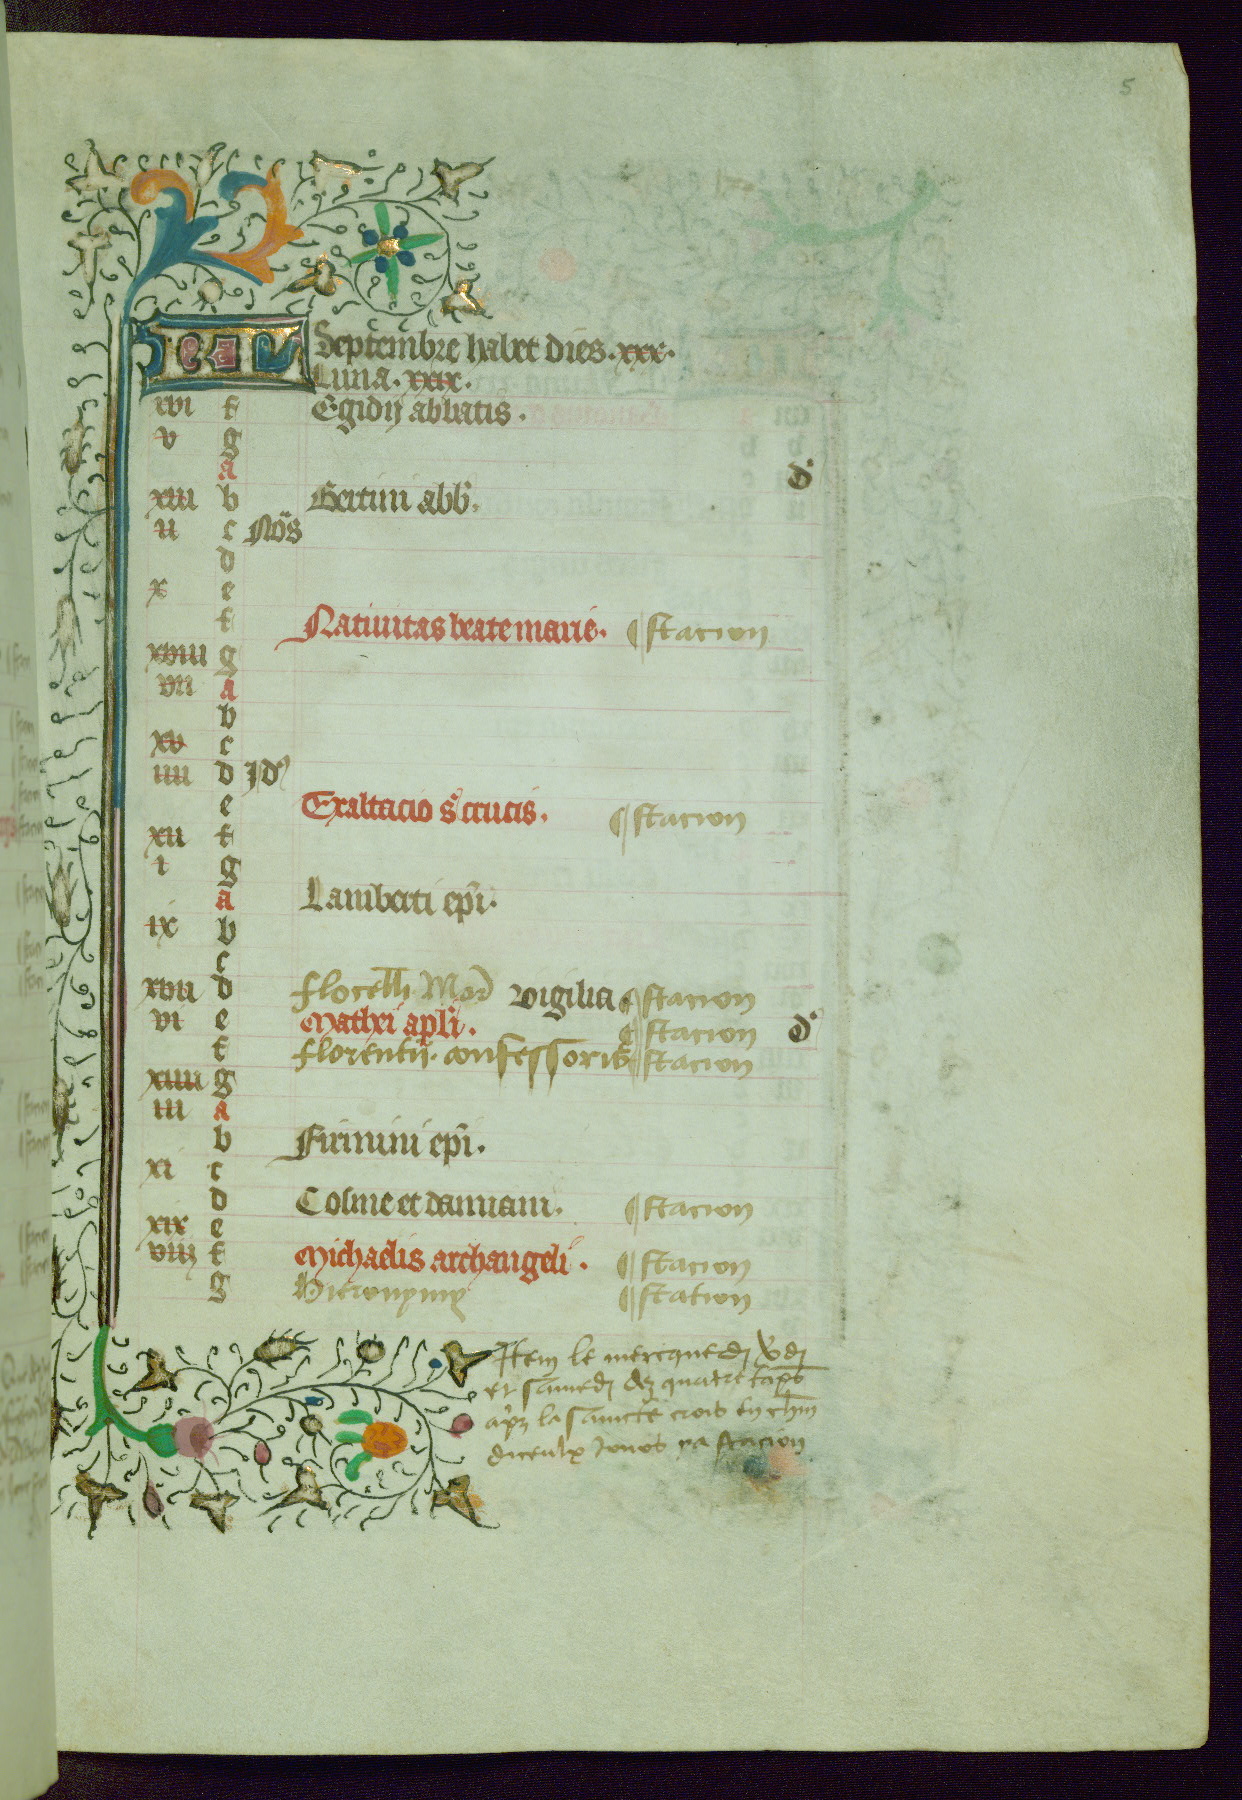 5
KL Septembre habet dies .xxx.
Luna .xxix.
xvi f Egidij abbatis .
v g
a d
xiii b Bertini abb.
ii c Nos
d
x e
f Natiuitas beate marie. stacion
xviii g
vii a
b
xv c
iiii d Jd
e Exaltacio s crucis . stacion
xii f
i g
a Lamberti epi.
ix b
c
xvii d florelli Mar vigilia stacion
vi e Mathei apli . stacion d
f florentij . confessoris stacion
xiiii g
iii a
b Firmini epi .
xi c
d Cosme et damiani . stacion
xix e
viii f Michaelis archangeli . stacion
g Hieronymi station
Item le mercquedj vedj
et samedj des quatre taps
apz la saincte crois en
diceulx Jours ya stacion